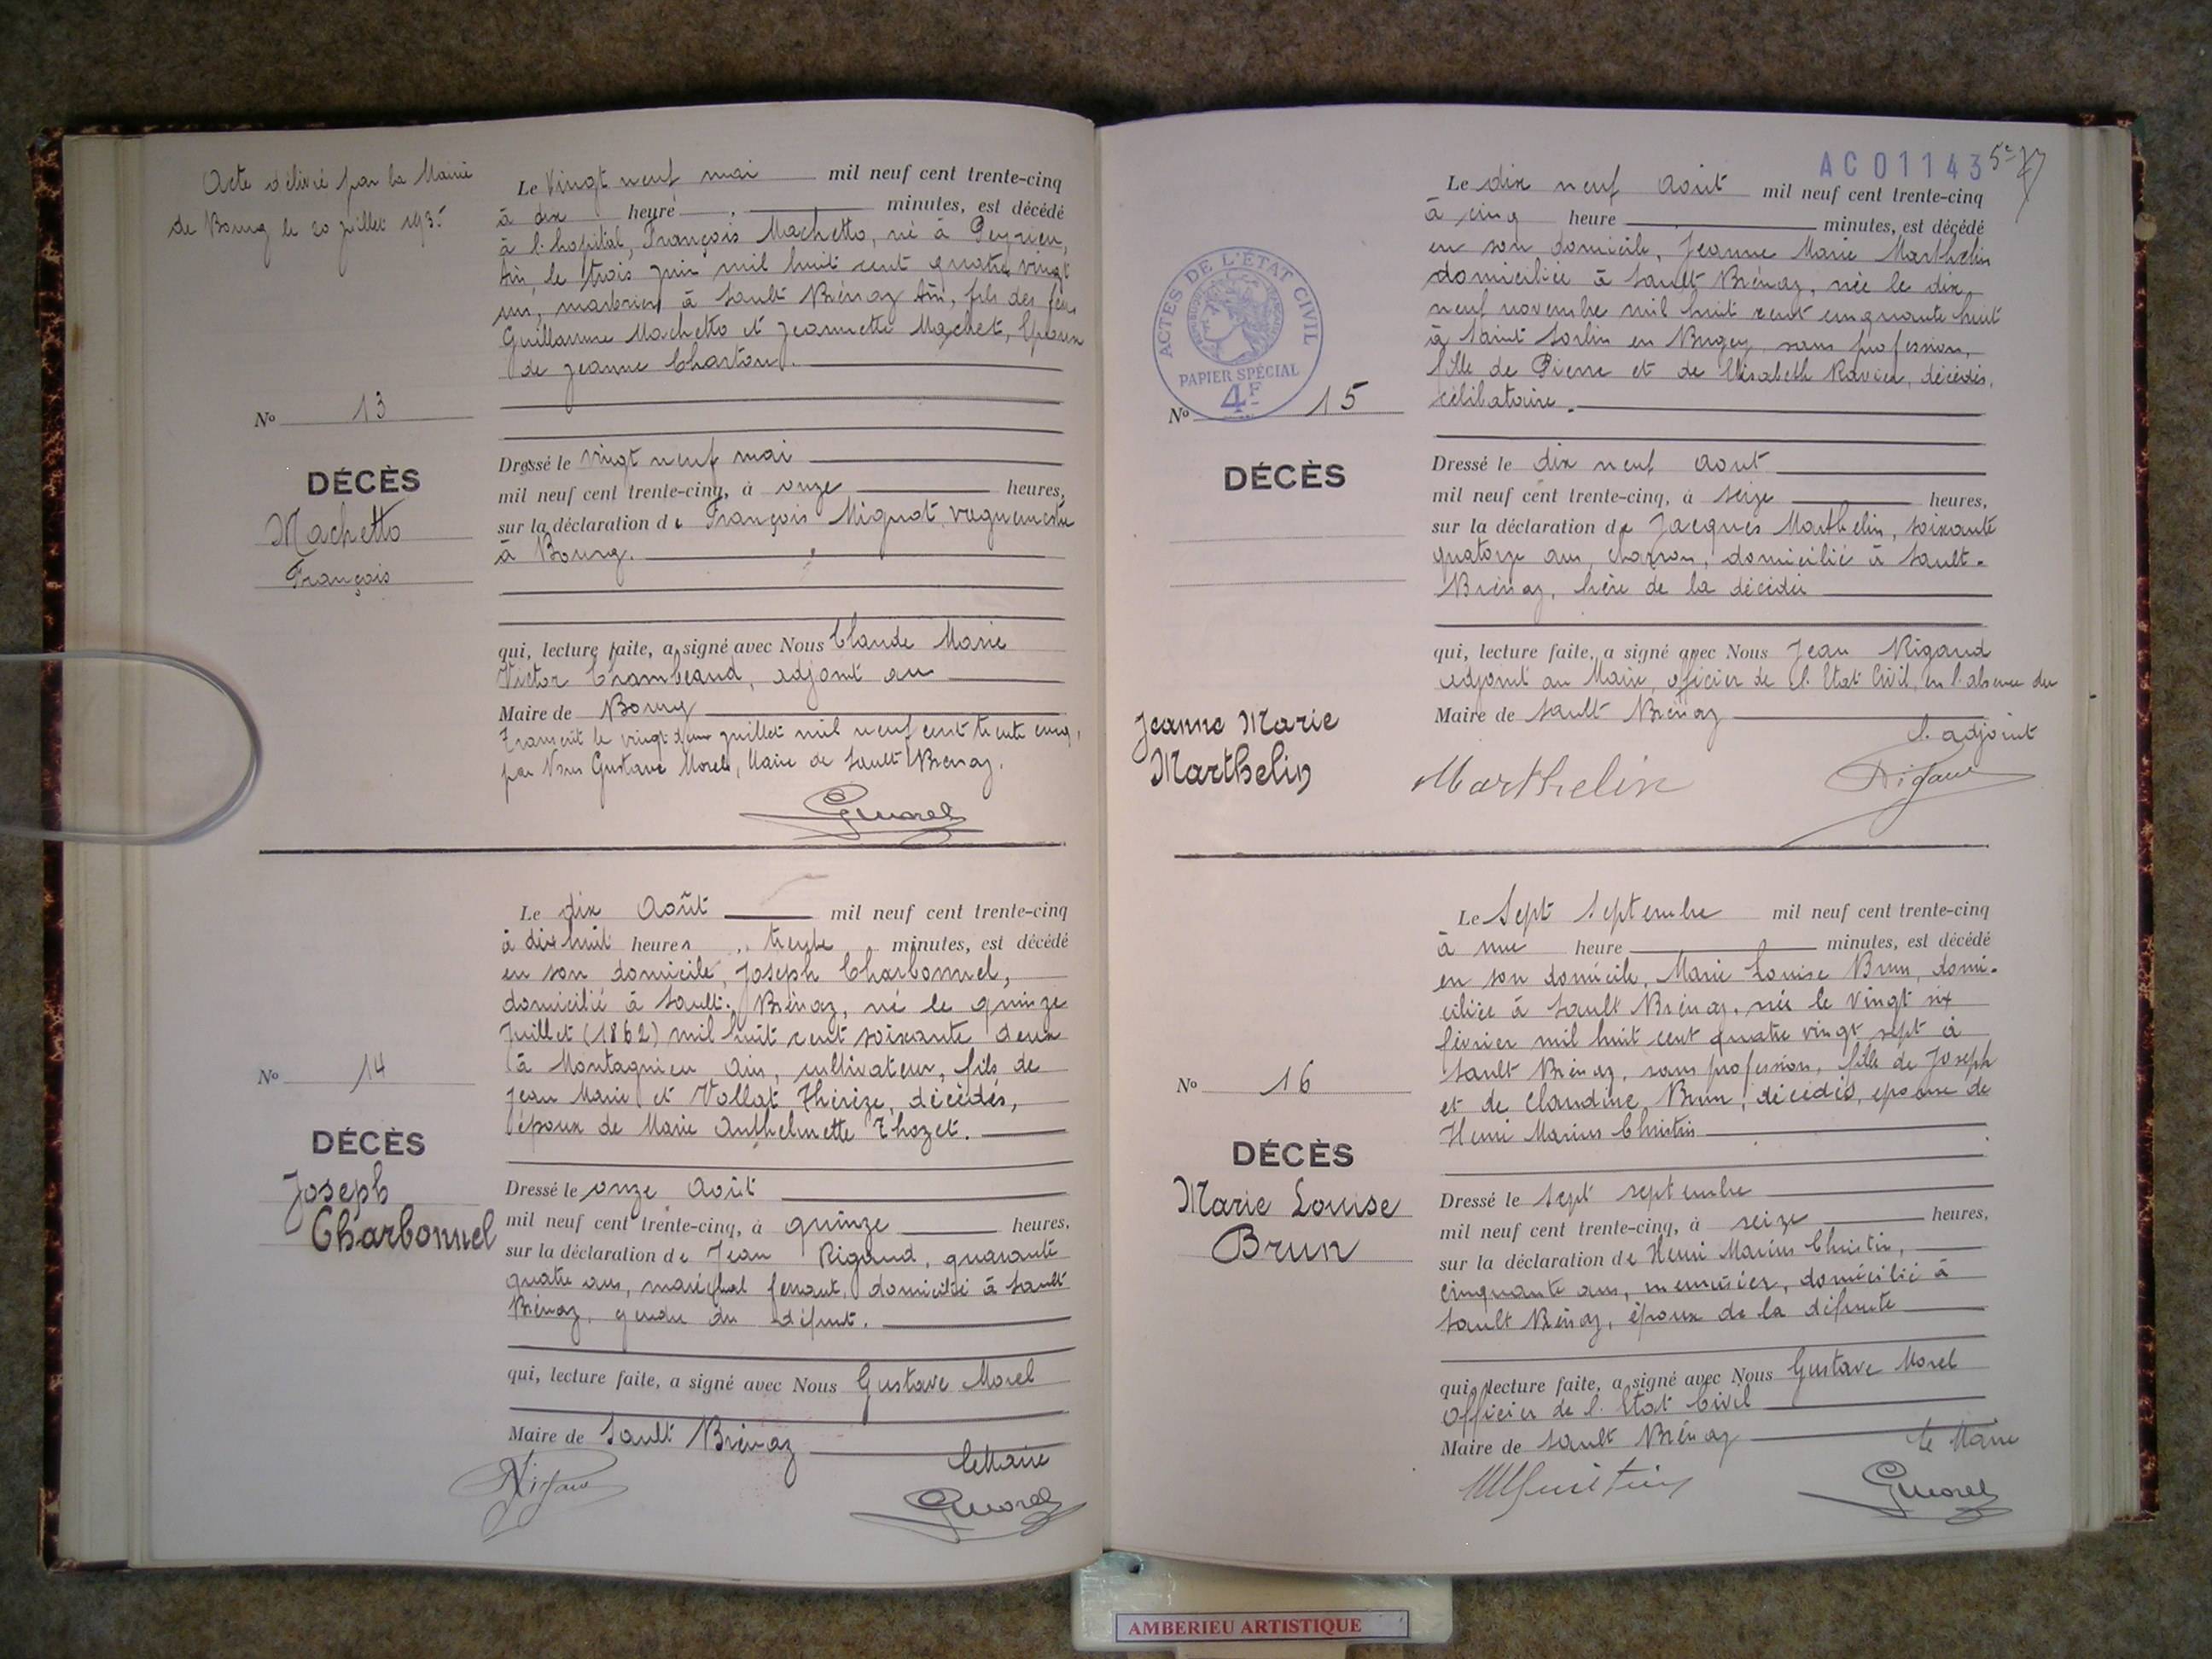 Acte délivré par la Mairie
de Bourg le 20 juillet 1935
Le Vingt neuf mai mil neuf cent trente-cinq
à dix heure minutes, est décédé
à l'hopital, François Machetto, né à Peyrieu,
Ain, le trois juin mil huit cent quatre vingt
un, marbrier à Sault Brénaz Ain, fils des feus
Guillaume Machetto et Jeannette Machet, Epoux
de Jeanne Charton.
No 13
DÉCÈS
Machetto
François
Dressé le vingt neuf mai
mil neuf cent trente-cinq, à onze heures,
sur la déclaration de François Mignot, vaguemestre
à Bourg.
qui, lecture faite, a signé avec Nous Claude Marie
Victor Chambeaud, adjoint au
Maire de Bourg
Transcrit le vingt deux juillet mil neuf cent trente cinq,
par Nous Gustave Morel, Maire de Sault Brénaz.
GMorel
Le dix Août mil neuf cent trente-cinq
à dix huit heures, trente minutes, est décédé
en son domicile, Joseph Charbonnel,
domicilié à Sault-Brénaz, né le quinze
Juillet (1862) mil huit cent soixante deux
à Montagnieu Ain, cultivateur, fils de
Jean Marie et Vollat Thérèze, décédés,
époux de Marie Anthelmette Thozet.
No 14
DÉCÈS
Joseph
Charbonnel
Dressé le onze Août
mil neuf cent trente-cinq, à quinze heures,
sur la déclaration de Jean Rigaud, quarante
quatre ans, maréchal ferrant, domicilié à Sault
Brénaz, gendre du défunt.
qui, lecture faite, a signé avec Nous Gustave Morel
Maire de Sault Brénaz
Le Maire
Rigaud
GMorel
AC01143
Le dix neuf Août mil neuf cent trente-cinq
à cinq heure minutes, est décédé
en son domicile, Jeanne Marie Marthelin
domiciliée à Sault Brénaz, née le dix
neuf novembre mil huit cent cinquante huit
à Saint Sorlin en Bugey, sans profession,
fille de Pierre et de Elisabeth Ravier, décédés,
célibataire.
ACTES DE L'ETAT CIVIL
PAPIER SPÉCIAL
4F
No 15
DÉCÈS
Dressé le dix neuf août
mil neuf cent trente-cinq, à seize heures,
sur la déclaration de Jacques Marthelin, soixante
quatorze ans, charron, domicilié à Sault-
Brénaz, frère de la décédée
qui, lecture faite, a signé avec Nous Jean Rigaud
adjoint au Maire, officier de l'Etat Civil, en l'absence du
Maire de Sault Brénaz
l'adjoint
Jeanne Marie
Marthelin
Marthelin
Rigaud
Le Sept Septembre mil neuf cent trente-cinq
à une heure minutes, est décédé
en son domicile, Marie Louise Brun, domi-
ciliée à Sault Brénaz, née le vingt six
février mil huit cent quatre vingt sept à
Sault Brénaz, sans profession, fille de Joseph
et de Claudine Brun, décédés, epouse de
Henri Marius Christin
No 16
DÉCÈS
Marie Louise
Brun
Dressé le sept septembre
mil neuf cent trente-cinq, à seize heures,
sur la déclaration de Henri Marius Christin,
cinquante ans, menuisier, domicilié à
Sault Brénaz, époux de la défunte
qui, lecture faite, a signé avec Nous Gustave Morel
Officier de l'Etat Civil
Maire de Sault Brénaz
Le Maire
GMorel
AMBERIEU ARTISTIQUE